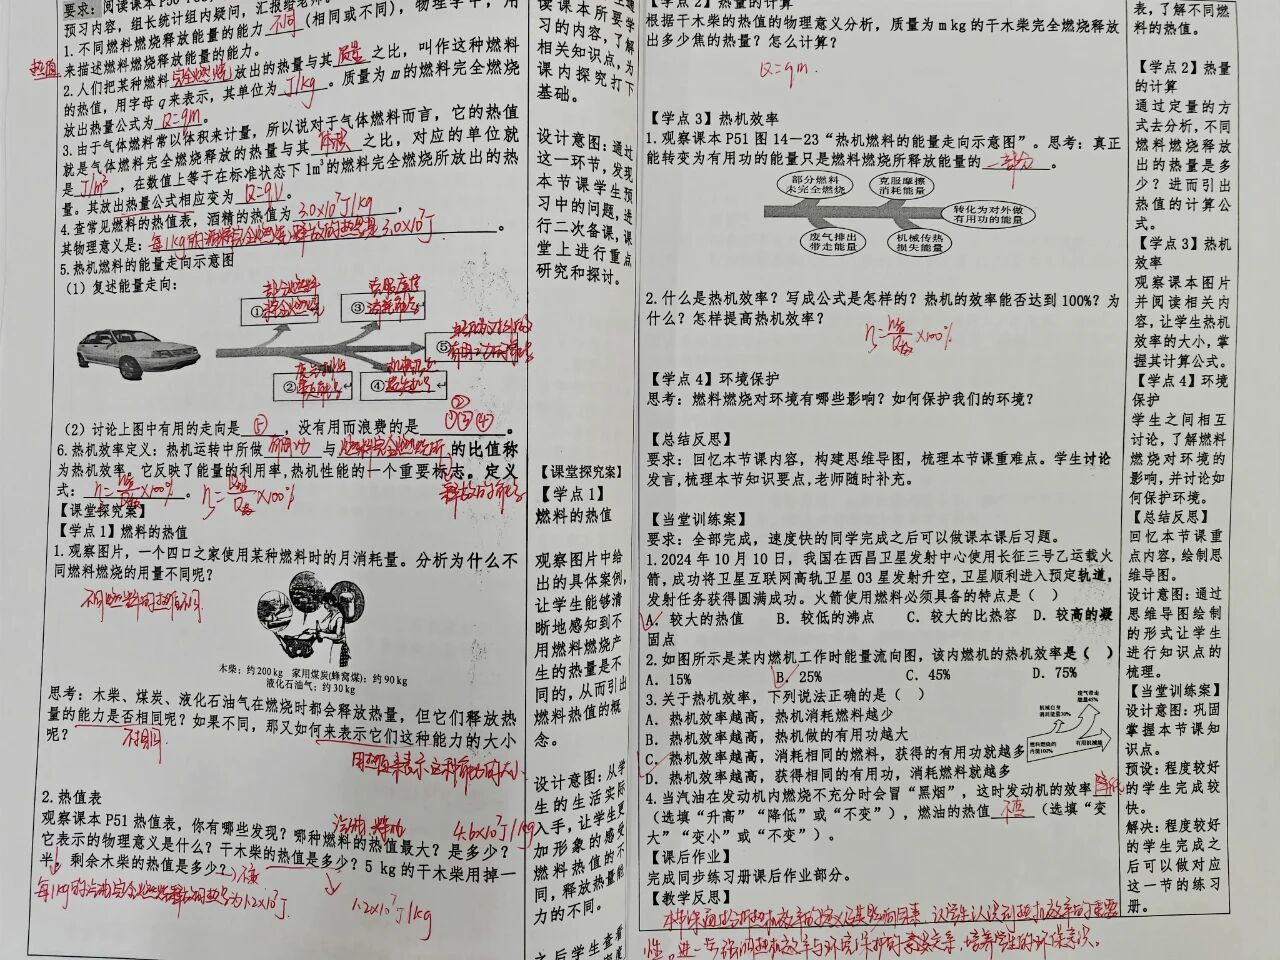 要求：阅读课本
预习内容，组长统计组内疑问，汇报给老师。
1.不同燃料燃烧释放能量的能力 不同 (相同或不同)，物理学中，用
热值 来描述燃料燃烧释放能量的能力。
2.人们把某种燃料 完全燃烧 放出的热量与其 质量 之比，叫作这种燃料
的热值，用字母 q 来表示，其单位为 J/kg 。质量为 m 的燃料完全燃烧
放出热量公式为 Q=qm 。
3.由于气体燃料常以体积来计量，所以说对于气体燃料而言，它的热值
就是气体燃料完全燃烧释放的热量与其 体积 之比，对应的单位就
是 J/m³ ，在数值上等于在标准状态下 1m³的燃料完全燃烧所放出的热
量。其放出热量公式相应变为 Q=qV 。
4.查常见燃料的热值表，酒精的热值为 3.0×10⁷J/kg ，
其物理意义是：每1kg的酒精完全燃烧释放的热量3.0×10⁷J 。
5.热机燃料的能量走向示意图
(1) 复述能量走向：
① 部分燃料未完全燃烧
③ 克服摩擦消耗能量
⑤
② 废气排出带走能量
④ 机械传热损失能量
(2) 讨论上图中有用的走向是 ⑤ ，没有用而浪费的是 ①②③④ 。
6.热机效率定义：热机运转中所做 有用功 与 燃料完全燃烧所释放的能量 的比值称
为热机效率。它反映了能量的利用率，热机性能的一个重要标志。定义
式： η=W有/Q放×100% 。 η= ×100%
【课堂探究案】
【学点 1】燃料的热值
1.观察图片，一个四口之家使用某种燃料时的月消耗量。分析为什么不
同燃料燃烧的用量不同呢？
不同燃料的热值不同
木柴：约 200 kg 家用煤炭(蜂窝煤)：约 90 kg
液化石油气：约 30 kg
思考：木柴、煤炭、液化石油气在燃烧时都会释放热量，但它们释放热
量的能力是否相同呢？如果不同，那又如何来表示它们这种能力的大小
呢？ 不相同
用热值来表示这种能力的大小
2.热值表
汽油 4.6×10⁷J/kg
观察课本 P51 热值表，你有哪些发现？哪种燃料的热值最大？是多少？
它表示的物理意义是什么？干木柴的热值是多少？5 kg 的干木柴用掉一
半，剩余木柴的热值是多少？ 不变
每1kg的 完全燃烧释放的热量为1.2×10⁷J.
1.2×10⁷J/kg
读课本所要学
习的内容，了解
相关知识点，为
课内探究打下
基础。
设计意图：通过
这一环节，发现
本节课学生预
习中的问题，进
行二次备课，课
堂上进行重点
研究和探讨。
【课堂探究案】
【学点 1】
燃料的热值
观察图片中给
出的具体案例，
让学生能够清
晰地感知到不
同燃料燃烧产
生的热量是不
同的，从而引出
燃料热值的概
念。
设计意图：从学
生的生活实际
入手，让学生更
加形象的感受
燃料热值的不
同，释放热量能
力的不同。
之后学生查看
【学点 2】热量的计算
根据干木柴的热值的物理意义分析，质量为 m kg 的干木柴完全燃烧释放
出多少焦的热量？怎么计算？
Q=qm.
【学点 3】热机效率
1.观察课本 P51 图 14—23“热机燃料的能量走向示意图”。思考：真正
能转变为有用功的能量只是燃料燃烧所释放能量的 一部分 。
部分燃料
未完全燃烧
克服摩擦
消耗能量
转化为对外做
有用功的能量
废气排出
带走能量
机械传热
损失能量
2.什么是热机效率？写成公式是怎样的？热机的效率能否达到 100%？为
什么？怎样提高热机效率？
η=W有/Q放×100%
【学点 4】环境保护
思考：燃料燃烧对环境有哪些影响？如何保护我们的环境？
【总结反思】
要求：回忆本节课内容，构建思维导图，梳理本节课重难点。学生讨论
发言，梳理本节知识要点，老师随时补充。
【当堂训练案】
要求：全部完成，速度快的同学完成之后可以做课本课后习题。
1.2024 年 10 月 10 日，我国在西昌卫星发射中心使用长征三号乙运载火
箭，成功将卫星互联网高轨卫星 03 星发射升空，卫星顺利进入预定轨道，
发射任务获得圆满成功。火箭使用燃料必须具备的特点是（ ）
A. 较大的热值 B. 较低的沸点 C. 较大的比热容 D. 较高的凝
固点
2.如图所示是某内燃机工作时能量流向图，该内燃机的热机效率是（ ）
A. 15% B. 25% C. 45% D. 75%
3.关于热机效率，下列说法正确的是（ ）
A. 热机效率越高，热机消耗燃料越少
B. 热机效率越高，热机做的有用功越大
C. 热机效率越高，消耗相同的燃料，获得的有用功就越多
D. 热机效率越高，获得相同的有用功，消耗燃料就越多
废气带走
能量45%
机械自身
消耗能量30%
燃料燃烧的
内能100%
有用机械能
4.当汽油在发动机内燃烧不充分时会冒“黑烟”，这时发动机的效率 降低
(选填“升高”“降低”或“不变”)，燃油的热值 不变 (选填“变
大”“变小”或“不变”)。
【课后作业】
完成同步练习册课后作业部分。
【教学反思】
本节课通过分析热机效率的定义及其影响因素，让学生认识到热机效率的重要
性。进一步强调热机效率与环境保护的紧密关系，培养学生的环保意识。
表，了解不同燃
料的热值。
【学点 2】热量
的计算
通过定量的方
式去分析，不同
燃料燃烧释放
出的热量是多
少？进而引出
热值的计算公
式。
【学点 3】热机
效率
观察课本图片
并阅读相关内
容，让学生热机
效率的大小，掌
握其计算公式。
【学点 4】环境
保护
学生之间相互
讨论，了解燃料
燃烧对环境的
影响，并讨论如
何保护环境。
【总结反思】
回忆本节课重
点内容，绘制思
维导图。
设计意图：通过
思维导图绘制
的形式让学生
进行知识点的
梳理。
【当堂训练案】
设计意图：巩固
掌握本节课知
识点。
预设：程度较好
的学生完成较
快。
解决：程度较好
的学生完成之
后可以做对应
这一节的练习
册。